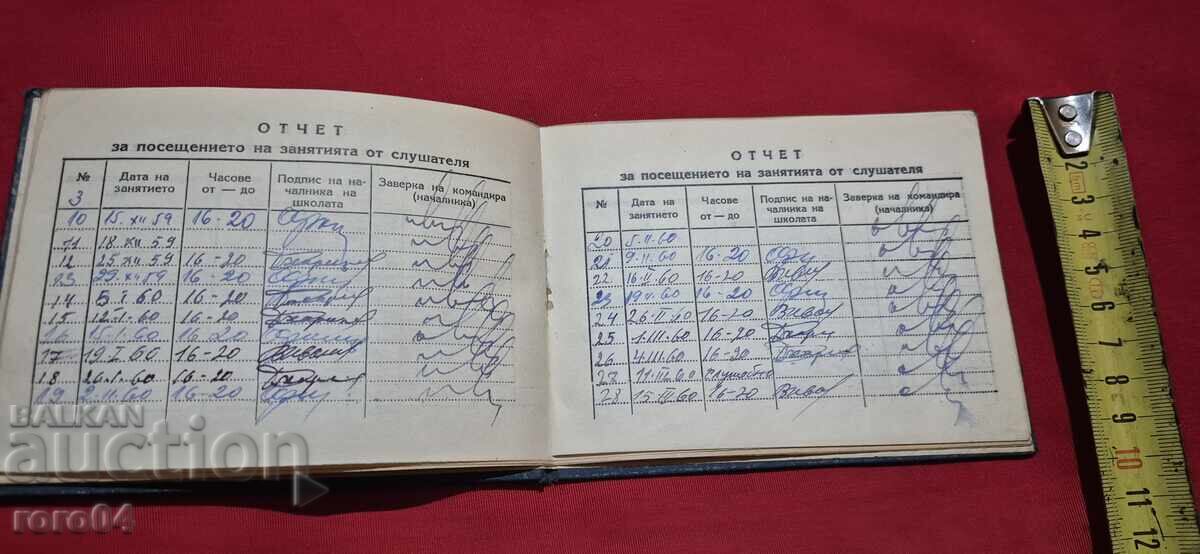 ОТЧЕТ
за посещението на занятията от слушателя
№ Дата на занятието Часове от — до Подпис на началника на школата Заверка на командира (началника)
3
10 15.XII.59 16-20
11 18.XII.59
12 25.XII.59 16-20
13 29.XII.59 16-20
14 5.I.60 16-20
15 12.I.60 16-20
16 15.I.60 16-20
17 19.I.60 16-20
18 26.I.60 16-20
19 2.II.60 16-20
ОТЧЕТ
за посещението на занятията от слушателя
№ Дата на занятието Часове от — до Подпис на началника на школата Заверка на командира (началника)
20 5.II.60
21 9.II.60 16-20
22 16.II.60 16-20
23 19.II.60 16-20
24 26.II.60 16-20
25 1.III.60 16-20
26 4.III.60 16-20
27 11.III.60
28 15.III.60 16-20
2 3 4 5 6 7 8 9 10 11 12
BALKAN
auction
roro04